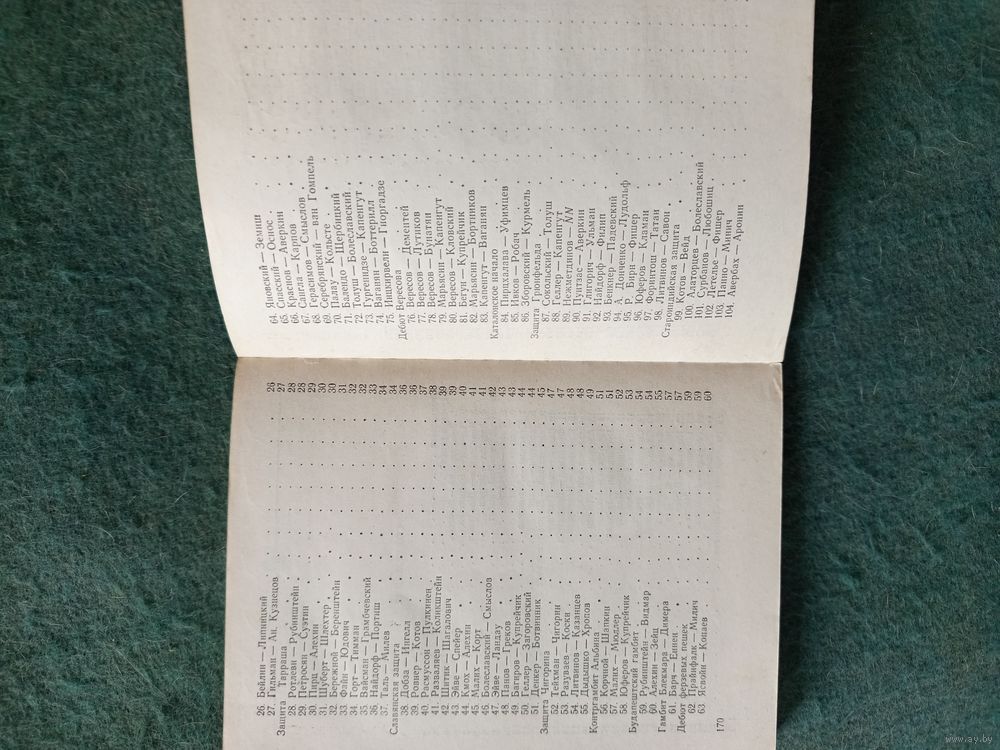 26. Бейлин — Липницкий 26
27. Тильман — Ан. Кузнецов 27
Защита Тарраша 28
28. Ротлеви — Рубинштейн 28
29. Петросян — Суэтин 29
30. Пирц — Алехин 30
31. Шуберт — Шлехтер 30
32. Бережной — Беренштейн 31
33. Файн — Юдович 32
34. Горт — Тимман 32
35. Вайсман — Грамбчевский 33
36. Найдорф — Портиш 34
37. Таль — Милев 34
Славянская защита 36
38. Добза — Ингелл 36
39. Ровнер — Котов 37
40. Расмуссон — Пулкинен 38
41. Разваляев — Коликштейн 39
42. Шитик — Шагалович 39
43. Эйве — Спейер 40
44. Кмох — Алехин 41
45. Малих — Корт 41
46. Болеславский — Смыслов 42
47. Эйве — Ландау 43
48. Панов — Греков 43
49. Багиров — Купрейчик 44
50. Геллер — Загоровский 44
51. Денкер — Ботвинник 45
Защита Чигорина 47
52. Тейхман — Чигорин 47
53. Разуваев — Коски 48
54. Литвинов — Казанцев 48
55. Дыдышко — Хропов 49
Контргамбит Альбина 51
56. Корчной — Шапкин 51
57. Малих — Мюллер 52
58. Юферов — Купрейчик 53
Будапештский гамбит 54
59. Рубинштейн — Видмар 54
60. Алехин — Зейц 55
Гамбит Блекмара — Димера 57
61. Барч — Еннен 57
Дебют ферзевых пешек 59
62. Прайнфалк — Милич 59
63. Ясвойн — Копаев 60
170
64. Яновский — Земиш
65. Спасский — Оснос
66. Краснов — Аверкин
67. Сангла — Карпов
68. Герасимов — Смыслов
69. Серебрийский — ван Гомпель
70. Палау — Кольсте
71. Балендо — Щербицкий
72. Толуш — Болеславский
73. Гургенидзе — Капенгут
74. Ваганян — Боттерилл
75. Цицкирвели — Гиоргадзе
Дебют Вересова
76. Вересов — Дементей
77. Вересов — Лутиков
78. Вересов — Бунатян
79. Марьясин — Капенгут
80. Вересов — Кловский
81. Бегун — Купрейчик
82. Марьясин — Бортников
83. Капенгут — Ваганян
Каталонское начало
84. Пирцхалава — Уфимцев
85. Цвиков — Робач
86. Зборовский — Курмель
Защита Грюнфельда
87. Собольский — Толуш
88. Геллер — Капенгут
89. Нежметдинов — NN
90. Пунтзас — Аверкин
91. Глигорич — Ульман
92. Найдорф — Филип
93. Бенкнер — Падевский
94. А. Донченко — Лудольф
95. Р. Бирн — Фишер
96. Юферов — Кламан
97. Форинтош — Татаи
98. Литвинов — Савон
Староиндийская защита
99. Котов — Вейд
100. Алаторцев — Болеславский
101. Сурбанов — Любошиц
102. Летелье — Фишер
103. Панно — Минич
104. Авербах — Арончин